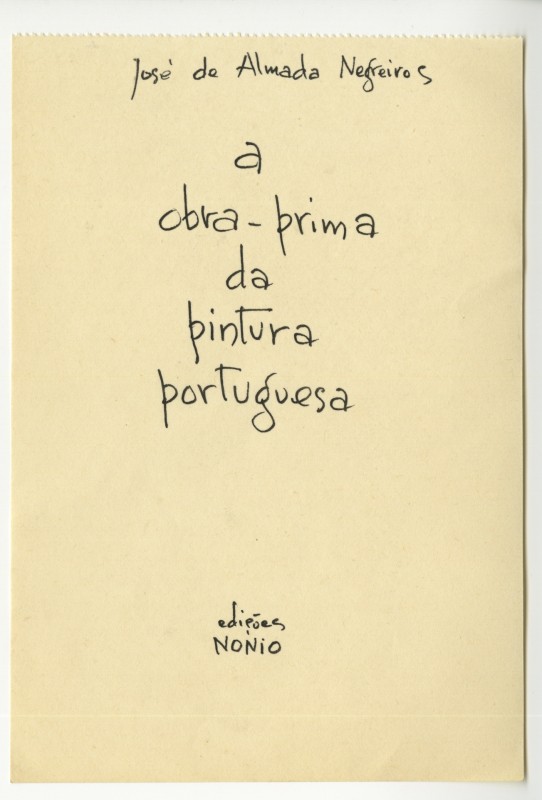 José de Almada Negreiros
a
obra-prima
da
pintura
portuguesa
edições
NONIO